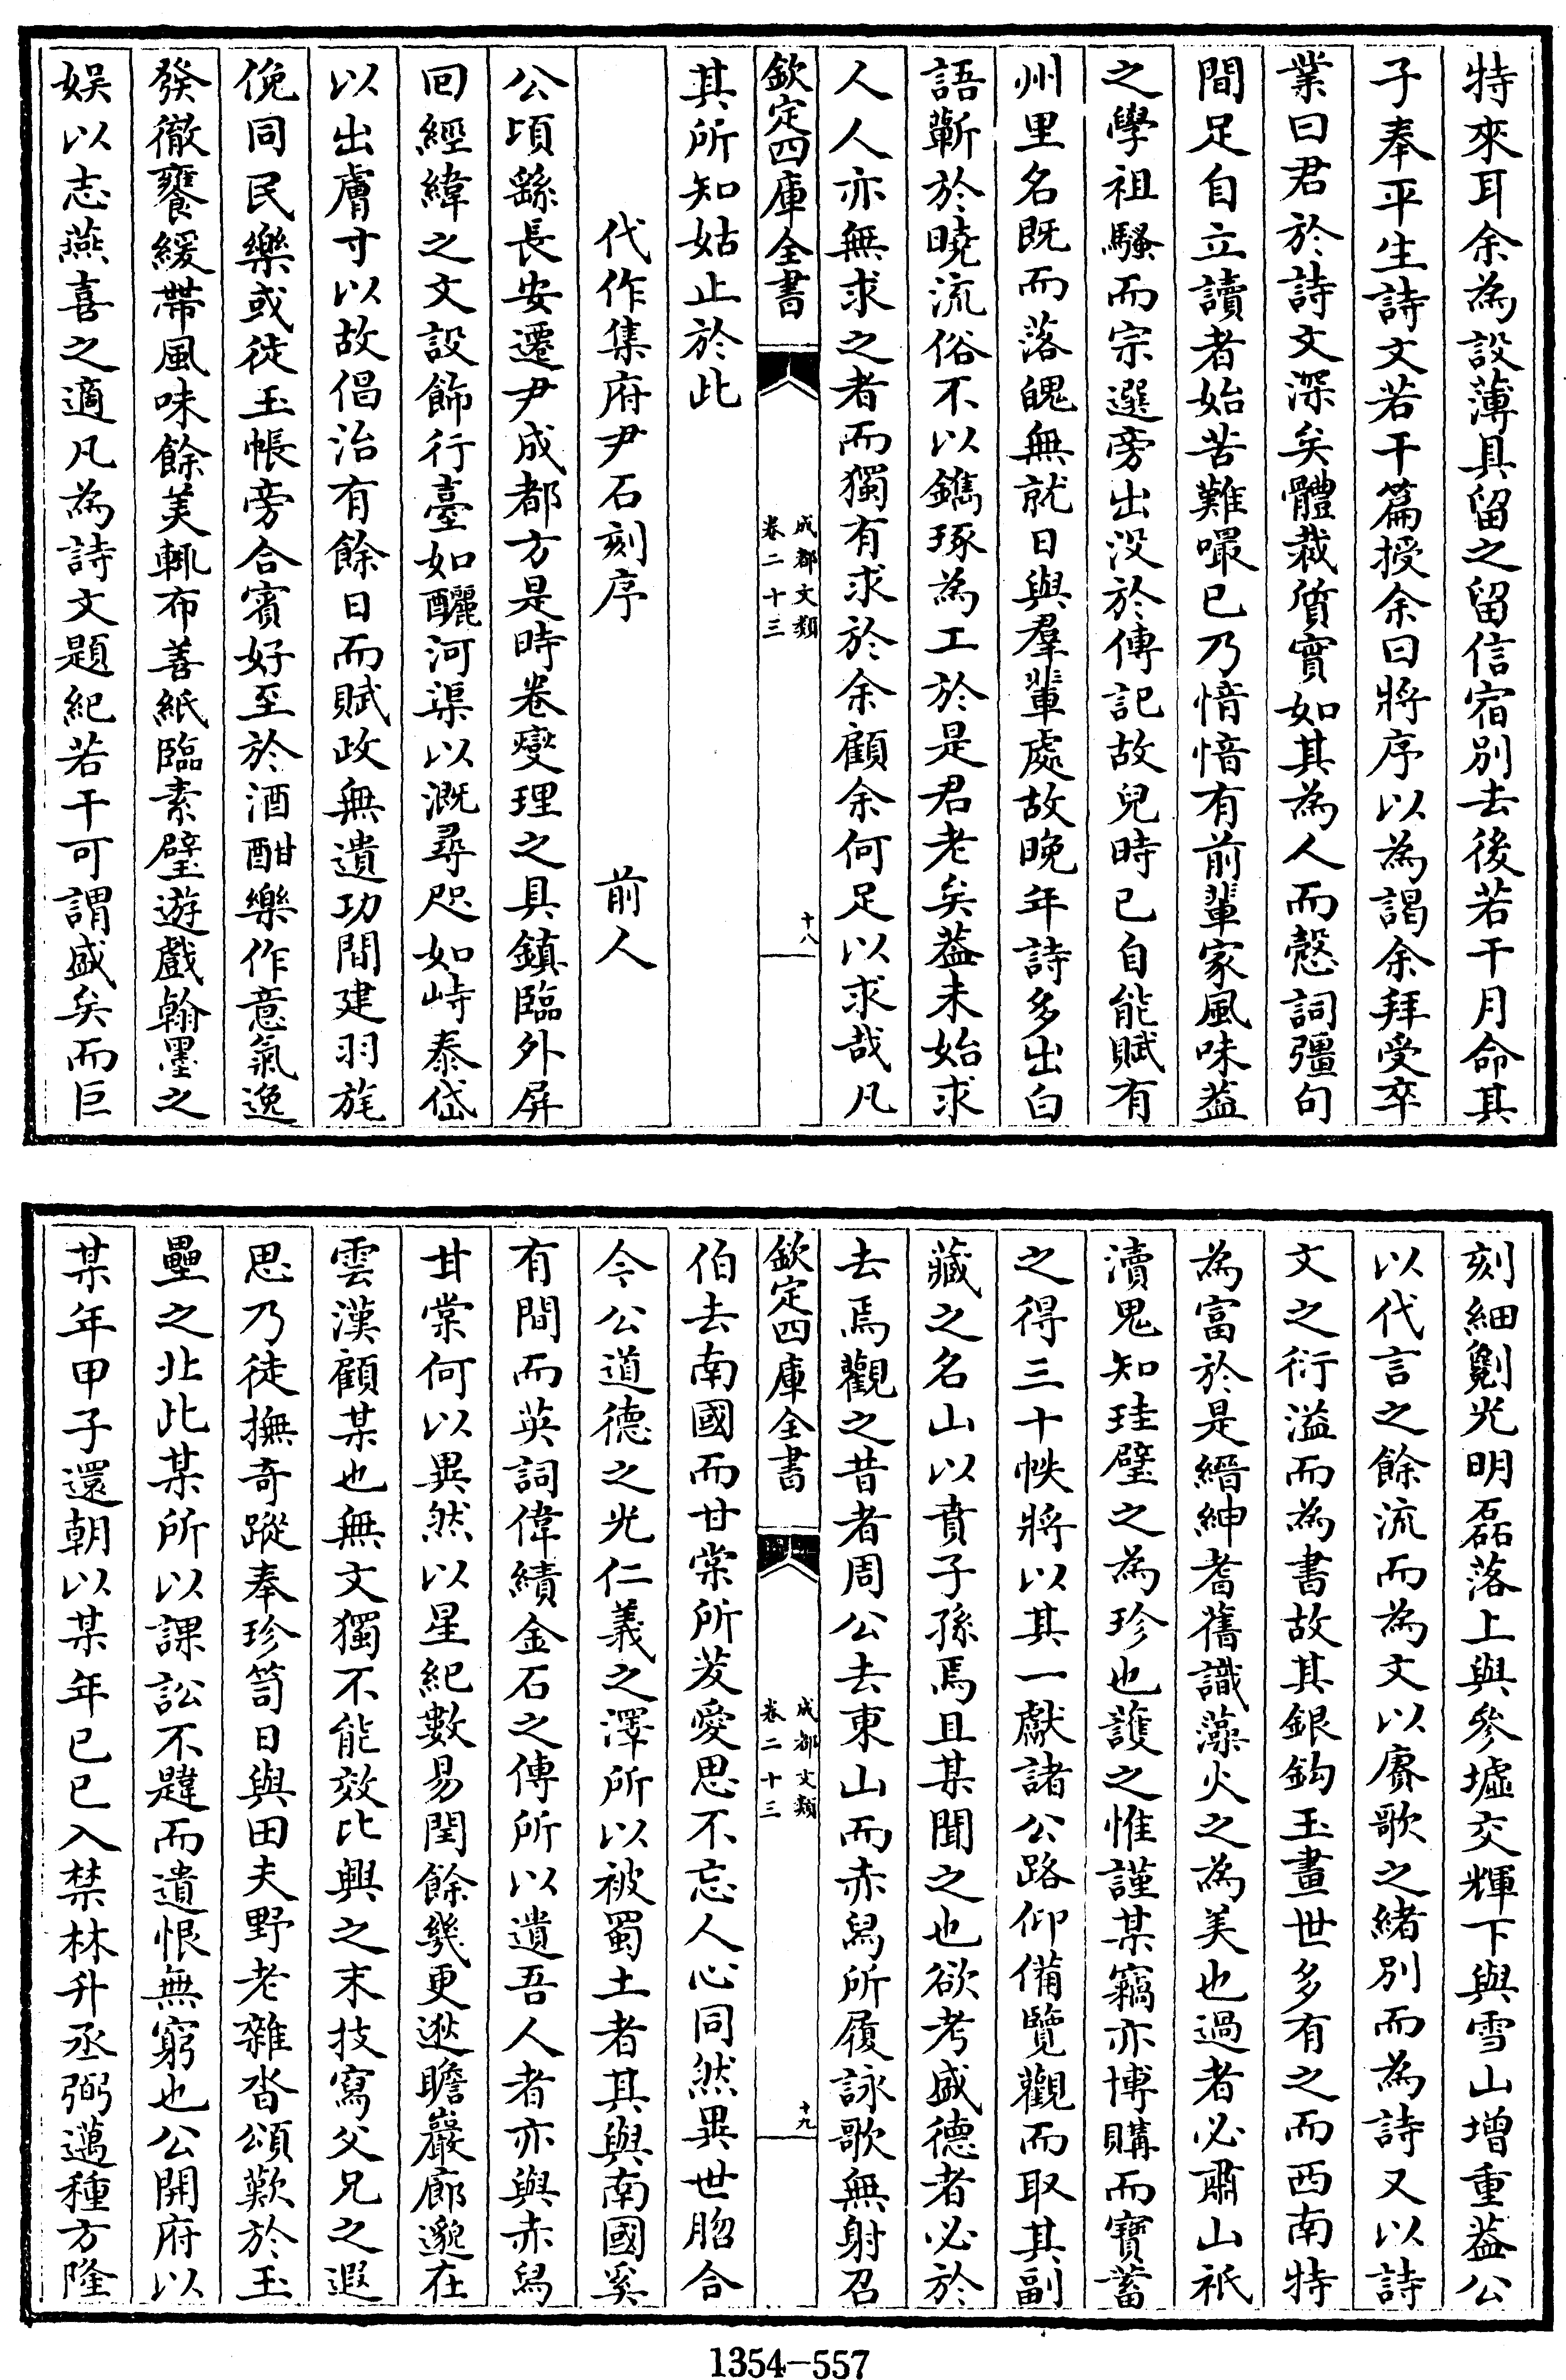 特來耳余為設薄具留之留信宿別去後若干月命其
子奉平生詩文若干篇授余曰將序以為謁余拜受卒
業曰君於詩文深矣體裁質實如其為人而慤詞彊句
間足自立讀者始苦難嘬已乃愔愔有前輩家風味葢
之學祖騷而宗選旁出没於傳記故兒時已自能賦有
州里名既而落魄無就日與羣輩處故晚年詩多出白
語蘄於曉流俗不以鐫琢為工於是君老矣葢未始求
人人亦無求之者而獨有求於余顧余何足以求哉凡
欽定四庫全書
成都文類
卷二十三
十八
其所知姑止於此
代作集府尹石刻序 前人
公頃繇長安遷尹成都方是時卷燮理之具鎮臨外屏
囘經緯之文設飾行臺如釃河渠以溉尋咫如峙泰岱
以出膚寸以故倡治有餘日而賦政無遺功間建羽旄
俛同民樂或徒玉帳旁合賓好至於酒酣樂作意氣逸
發徹饔緩帶風味餘美輒布善紙臨素壁遊戲翰墨之
娱以志燕喜之適凡為詩文題紀若干可謂盛矣而巨
刻細劖光明磊落上與參墟交輝下與雪山增重葢公
以代言之餘流而為文以賡歌之緒別而為詩又以詩
文之衍溢而為書故其銀鈎玉畫世多有之而西南特
為富於是縉紳耆舊識藻火之為美也過者必肅山祇
瀆鬼知珪璧之為珍也護之惟謹某竊亦博購而寶蓄
之得三十帙將以其一獻諸公路仰備覽觀而取其副
藏之名山以賁子孫焉且某聞之也欲考盛德者必於
去焉觀之昔者周公去東山而赤舄所履詠歌無射召
欽定四庫全書
成都文類
卷二十三
十九
伯去南國而甘棠所茇愛思不忘人心同然異世脗合
今公道德之光仁義之澤所以被蜀土者其與南國奚
有間而英詞偉績金石之傳所以遺吾人者亦與赤舄
甘棠何以異然以星紀數易閏餘幾更逖瞻巖廊邈在
雲漢顧某也無文獨不能效比興之末技寫父兄之遐
思乃徒撫奇蹤奉珍笥日與田夫野老雜沓頌歎於玉
壘之北此某所以課訟不韙而遺恨無窮也公開府以
某年甲子還朝以某年已已入禁林升丞弼邁種方隆
1354-557